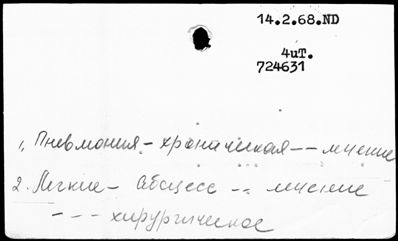 14.2.68.ND
4иТ.
724631
1, Пневмония - хроническая -- лечение
2. Легкие - Абсцесс -- лечение
- - - хирургическое